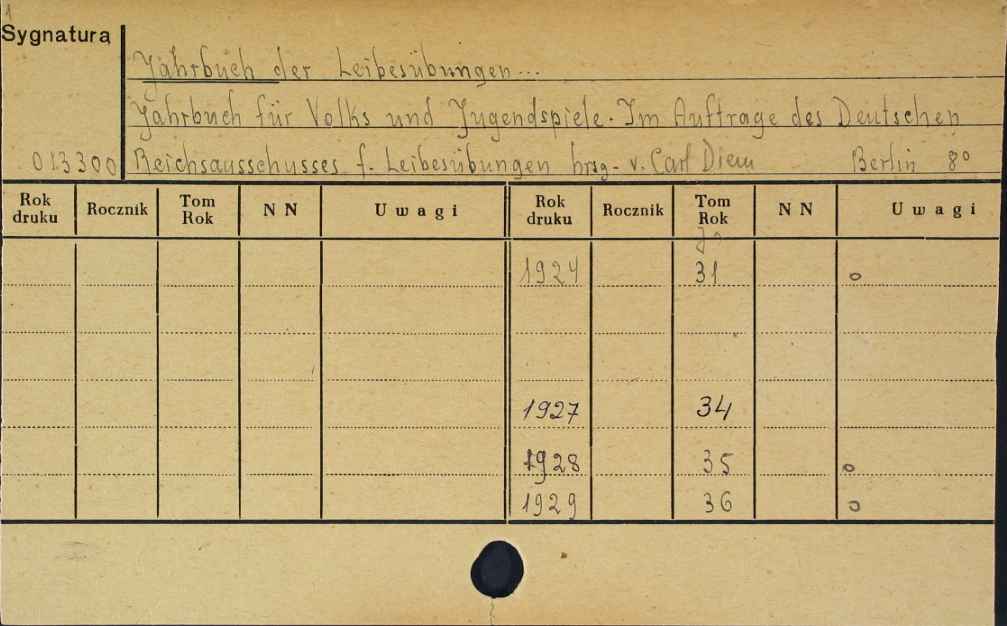 Sygnatura
Jahrbuch der Leibesübungen...
Jahrbuch für Volks und Jugendspiele. Im Auftrage des Deutschen
013300 Reichsausschusses f. Leibesübungen hrsg. v. Carl Diem Berlin 8°
Rok druku Rocznik Tom Rok NN Uwagi Rok druku Rocznik Tom Rok NN Uwagi
1924 31 o
1927 34
1928 35 o
1929 36 o